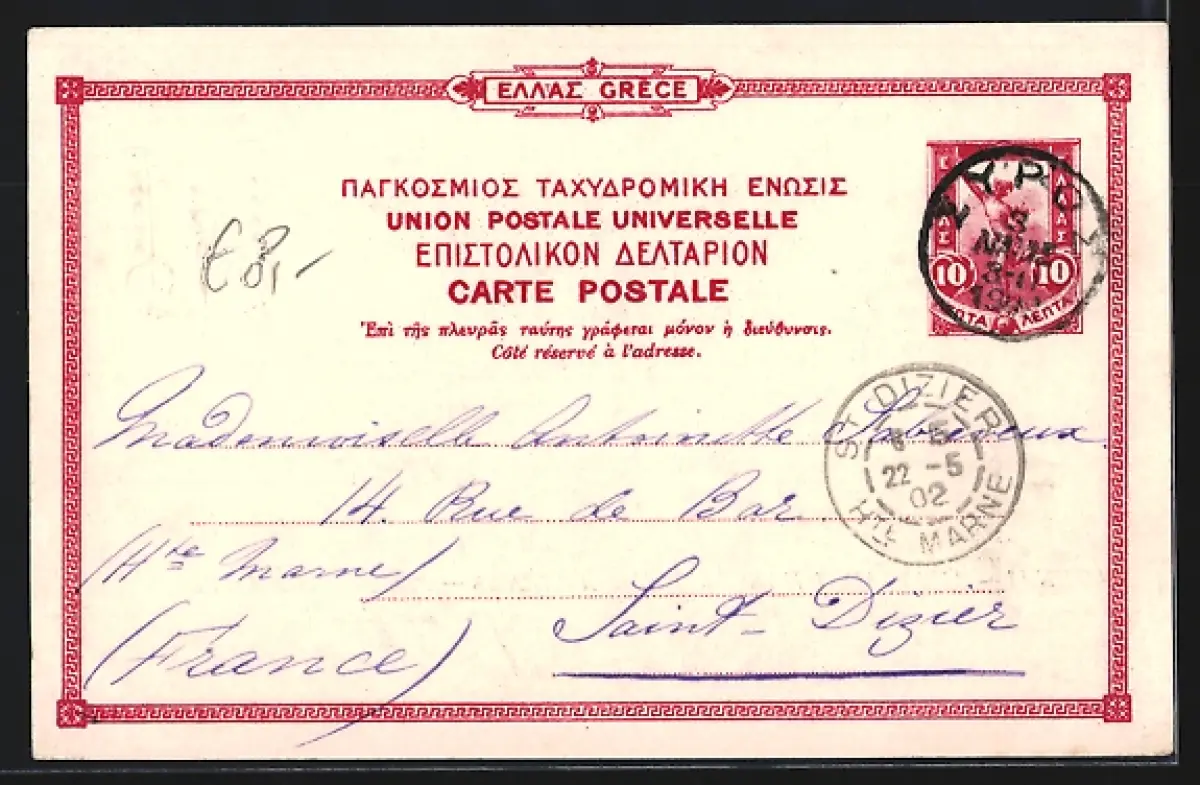 ΕΛΛΑΣ GRÈCE
ΠΑΓΚΟΣΜΙΟΣ ΤΑΧΥΔΡΟΜΙΚΗ ΕΝΩΣΙΣ
UNION POSTALE UNIVERSELLE
ΕΠΙΣΤΟΛΙΚΟΝ ΔΕΛΤΑΡΙΟΝ
CARTE POSTALE
Ἐπὶ τῆς πλευρᾶς ταύτης γράφεται μόνον ἡ διεύθυνσις.
Côté réservé à l'adresse.
10 10
ΛΕΠΤΑ
€ 8,-
Mademoiselle Antoinette
14. Rue de Bar
(Hte Marne)
Saint-Dizier
(France)
ST DIZIER
22 -5
02
HTE MARNE